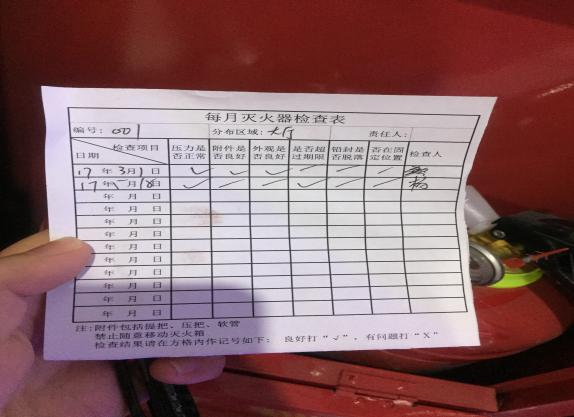 每月灭火器检查表
编号: 001 分布区域: 大厅 责任人:
检查项目 日期 压力是否正常 附件是否良好 外观是否良好 是否超过期限 铅封是否脱落 否在固定位置 检查人
17年3月1日 ✓ ✓ ✓
17年 月18日 ✓
年 月 日
年 月 日
年 月 日
年 月 日
年 月 日
年 月 日
年 月 日
年 月 日
年 月 日
年 月 日
注:附件包括提把、压把、软管
禁止随意移动灭火箱
检查结果请在方格内作记号如下: 良好打“√”,有问题打“X”